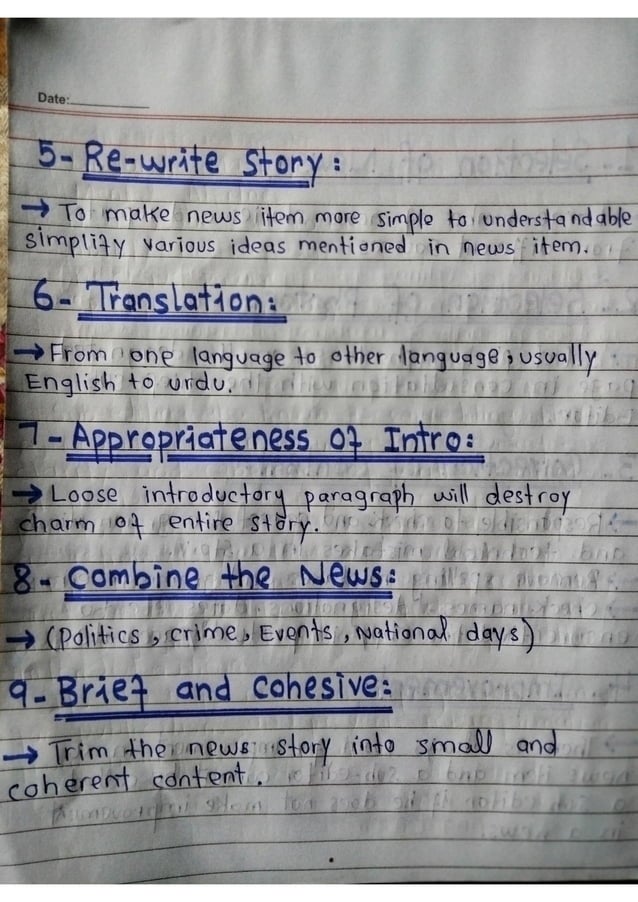 Date:
5- Re-write Story:
→ To make news item more simple to understandable
simplify various ideas mentioned in news item.
6- Translation:
→ From one language to other language, usually
English to urdu.
7- Appropriateness of Intro:
→ Loose introductory paragraph will destroy
charm of entire story.
8- Combine the News:
→ (Politics, crime, Events, National days)
9- Brief and Cohesive:
→ Trim the news story into small and
coherent content.